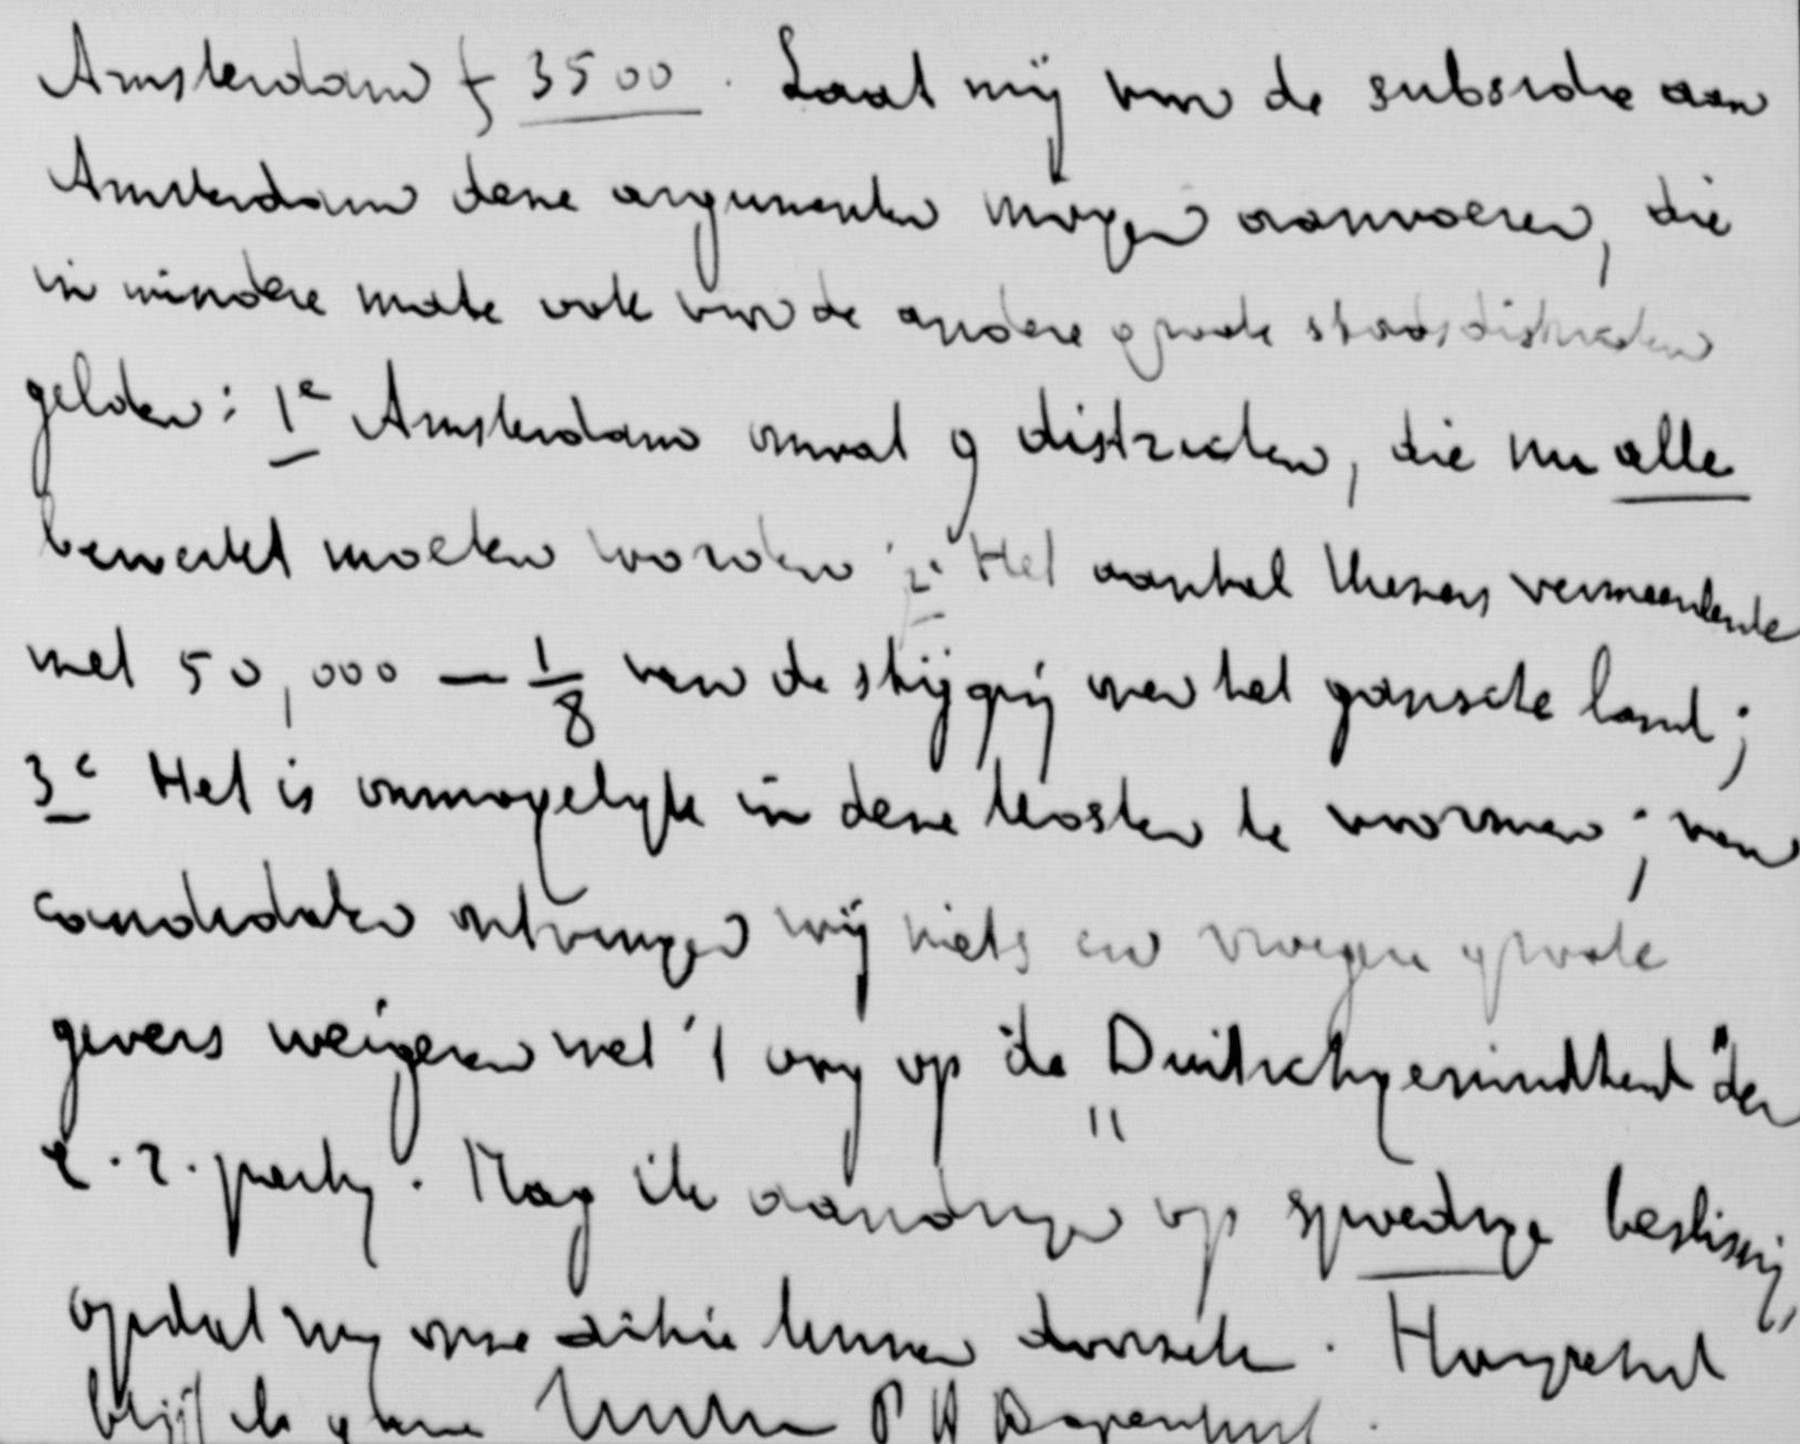 Amsterdam f 3500. Laat mij voor de subsidie aan
Amsterdam deze argumenten mogen aanvoeren, die
in mindere mate ook voor de andere groote stadsdistricten
gelden: 1e Amsterdam omvat 9 districten, die nu alle
bewerkt moeten worden; 2e Het aantal kiezers vermeerderde
met 50,000 — 1/8 van de stijging over het gansche land;
3e Het is onmogelijk in deze kosten te voorzien; van
candidaten ontvangen wij niets en vroegere groote
gevers weigeren met 't oog op de "Duitschgezindheid" der
a.r. partij. Mag ik aandringen op spoedige beslissing,
opdat wij onze actie kunnen doorzetten. Hoogachtend
blijf ik gaarne